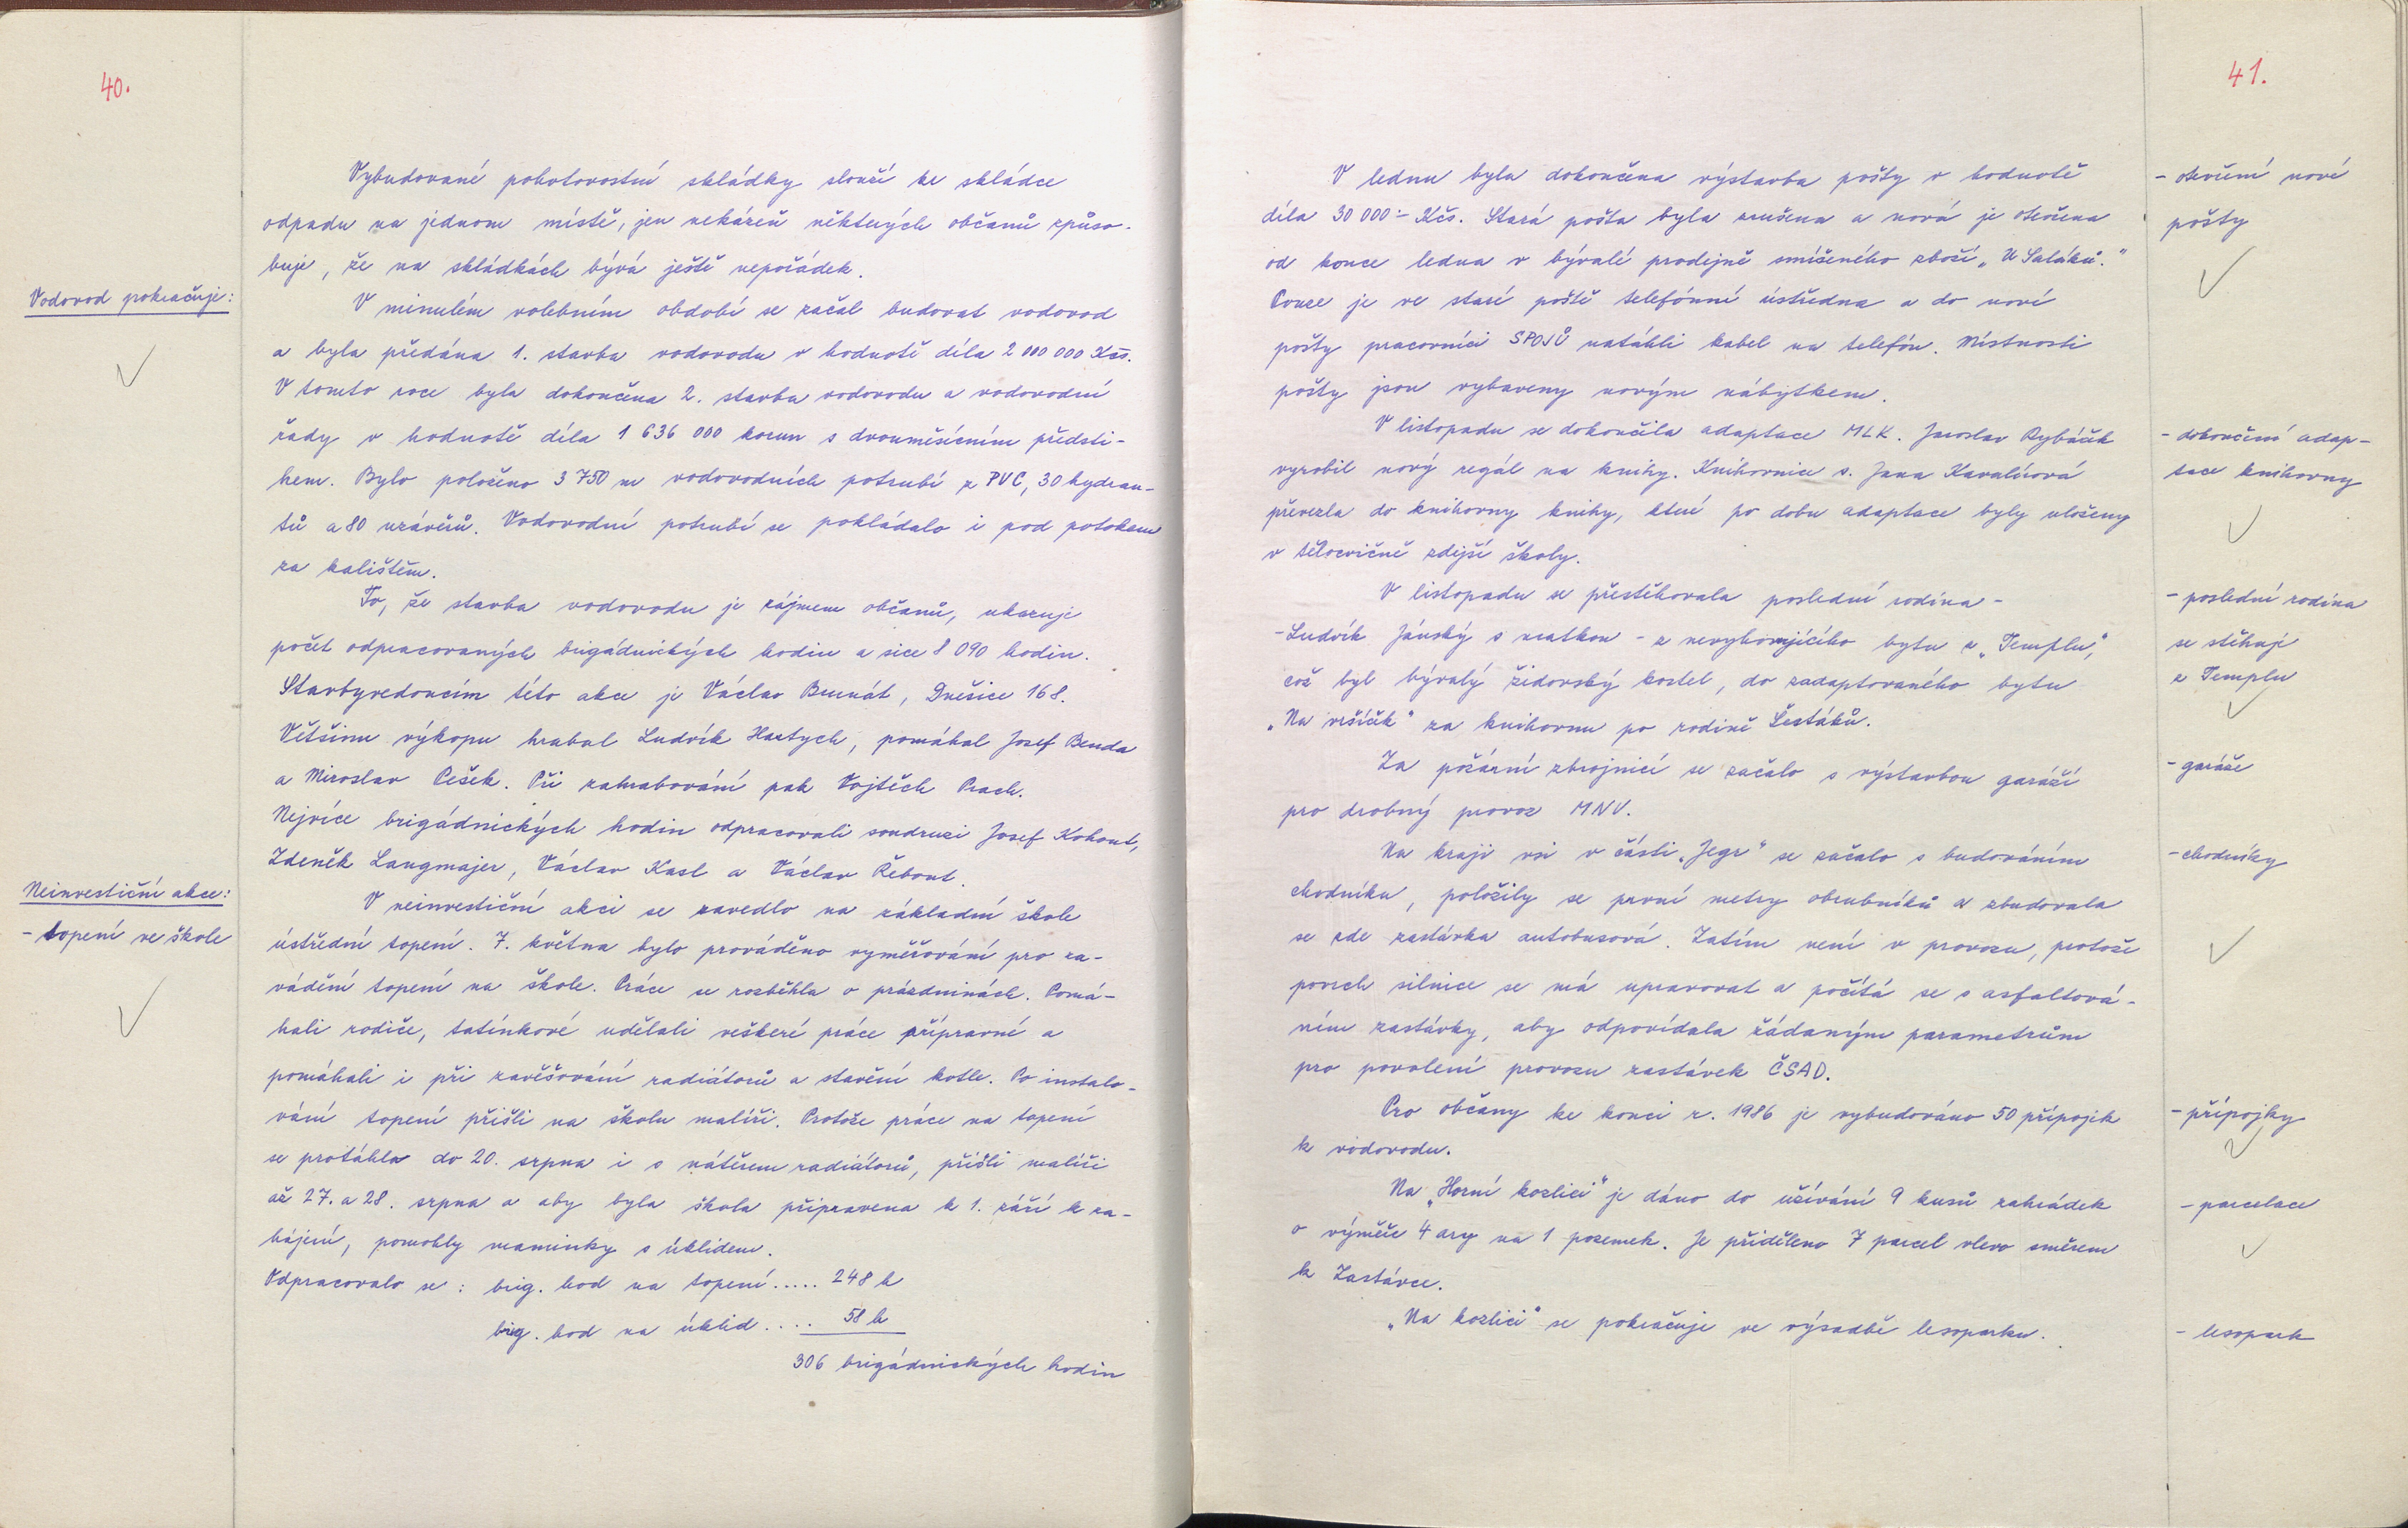 40.
Vybudované pohotovostní skládky slouží ke skládce
odpadu na jednom místě, jen nekázeň některých občanů způso-
buje, že na skládkách bývá ještě nepořádek.
Vodovod pokračuje:
V minulém volebním období se začal budovat vodovod
a byla předána 1. stavba vodovodu v hodnotě díla 2 000 000 Kčs.
V tomto roce byla dokončena 2. stavba vodovodu a vodovodní
řady v hodnotě díla 1 636 000 korun s dvouměsíčním předsti-
hem. Bylo položeno 3 750 m vodovodních potrubí z PVC, 30 hydran-
tů a 80 uzávěrů. Vodovodní potrubí se pokládalo i pod potokem
za kalištěm.
To, že stavba vodovodu je zájmem občanů, ukazuje
počet odpracovaných brigádnických hodin a sice 8 090 hodin.
Stavbyvedoucím této akce je Václav Brunát, Dnešice 168.
Většinu výkopu hrabal Ludvík Hartych, pomáhal Josef Benda
a Miroslav Pešek. Při zahrabování pak Vojtěch Prach.
Nejvíce brigádnických hodin odpracovali soudruzi Josef Kohout,
Zdeněk Langmajer, Václav Kasl a Václav Řebout.
Neinvestiční akce:
- topení ve škole
V neinvestiční akci se zavedlo na základní škole
ústřední topení. 7. května bylo prováděno vyměřování pro za-
vádění topení na škole. Práce se rozběhla o prázdninách. Pomá-
hali rodiče, tatínkové udělali veškeré práce přípravné a
pomáhali i při zavěšování radiátorů a stavění kotle. Po instalo-
vání topení přišli na školu malíři. Protože práce na topení
se protáhla do 20. srpna i s nátěrem radiátorů, přišli malíři
až 27. a 28. srpna a aby byla škola připravena k 1. září k za-
hájení, pomohly maminky s úklidem.
Odpracovalo se : brig. hod na topení ..... 248 h
brig. hod na úklid .... 58 h
306 brigádnických hodin
41.
V lednu byla dokončena výstavba pošty v hodnotě
díla 30 000:- Kčs. Stará pošta byla zrušena a nová je otevřena
od konce ledna v bývalé prodejně smíšeného zboží „U Saláků."
Pouze je ve staré poště telefónní ústředna a do nové
pošty pracovníci SPOJŮ natáhli kabel na telefón. Místnosti
pošty jsou vybaveny novým nábytkem.
- otevření nové
pošty
V listopadu se dokončila adaptace MLK. Jaroslav Rybáček
vyrobil nový regál na knihy. Knihovnice s. Jana Kavalírová
převezla do knihovny knihy, které po dobu adaptace byly uloženy
v tělocvičně zdejší školy.
- dokončení adap-
tace knihovny
V listopadu se přestěhovala poslední rodina -
- Ludvík Jánský s matkou - z nevyhovujícího bytu z „Templu,"
což byl bývalý židovský kostel, do zadaptovaného bytu
„Na vršíček" za knihovnu po rodině Šestáků.
- poslední rodina
se stěhuje
z Templu
Za požární zbrojnicí se začalo s výstavbou garáží
pro drobný provoz MNV.
- garáže
Na kraji vsi v části „Jegr" se začalo s budováním
chodníku, položily se první metry obrubníků a zbudovala
se zde zastávka autobusová. Zatím není v provozu, protože
povrch silnice se má upravovat a počítá se s asfaltová-
ním zastávky, aby odpovídala žádaným parametrům
pro povolení provozu zastávek ČSAD.
- chodníky
Pro občany ke konci r. 1986 je vybudováno 50 přípojek
k vodovodu.
- přípojky
Na „Horní kozlici" je dáno do užívání 9 kusů zahrádek
o výměře 4 ary na 1 pozemek. Je přiděleno 7 parcel vlevo směrem
k Zastávce.
- parcelace
„Na kozlici" se pokračuje ve výsadbě lesoparku.
- lesopark